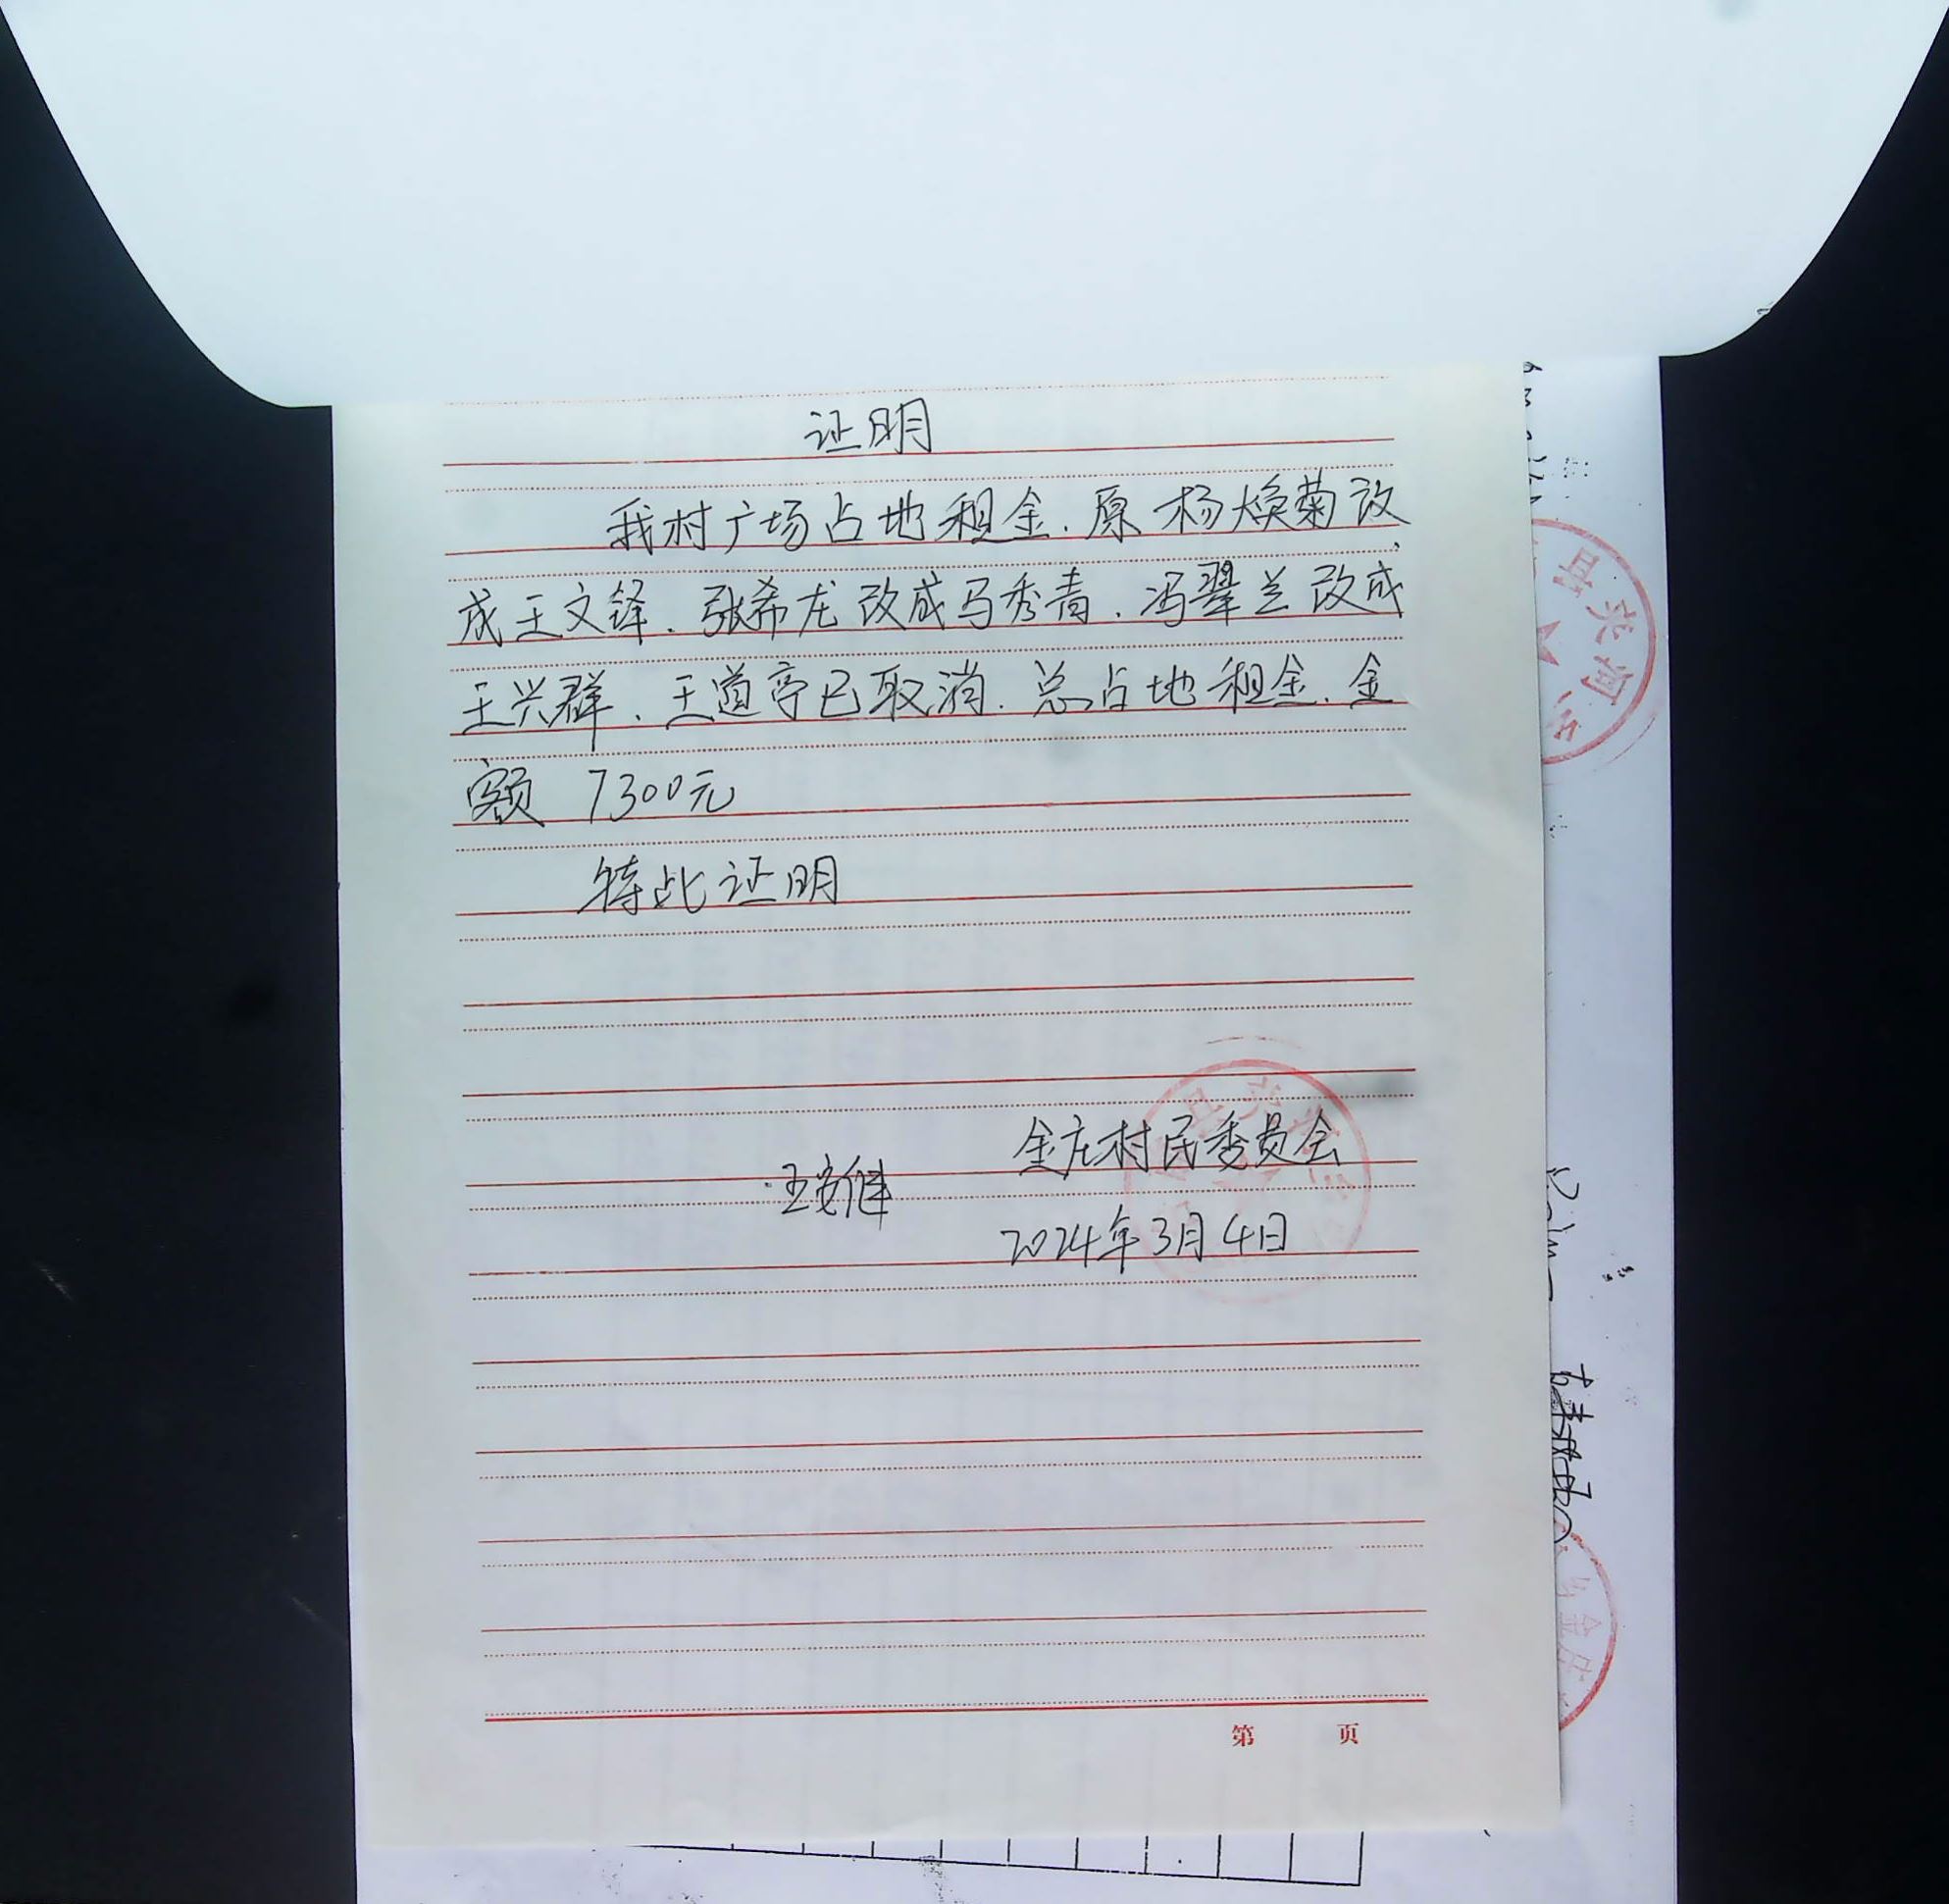 证明
我村广场占地租金.原杨焕菊改
成王文铎.张希龙改成马秀青.冯翠兰改成
王兴群.王道亭已取消.总占地租金.金
额 7300元
特此证明
金庄村民委员会
2024年3月4日
第 页